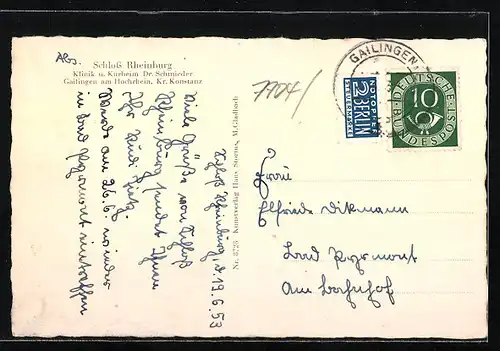 Abs.
Schloß Rheinburg
Klinik u. Kurheim Dr. Schmieder
Gailingen am Hochrhein, Kr. Konstanz
7704/
GAILINGEN
NOTOPFER
2 BERLIN
STEUERMARKE
DEUTSCHE
10
BUNDESPOST
Schloß Rheinburg, d. 19.6.53
Viele Grüße von Schloß
Rheinburg sendet Ihnen
Ihr Rudi
Werde am 26.6. wieder
in Bad Pyrmont eintreffen
Nr. 8723 Kunstverlag Hans Storms, M.Gladbach
Frau
Elfriede Dikmann
Bad Pyrmont
Am Bahnhof